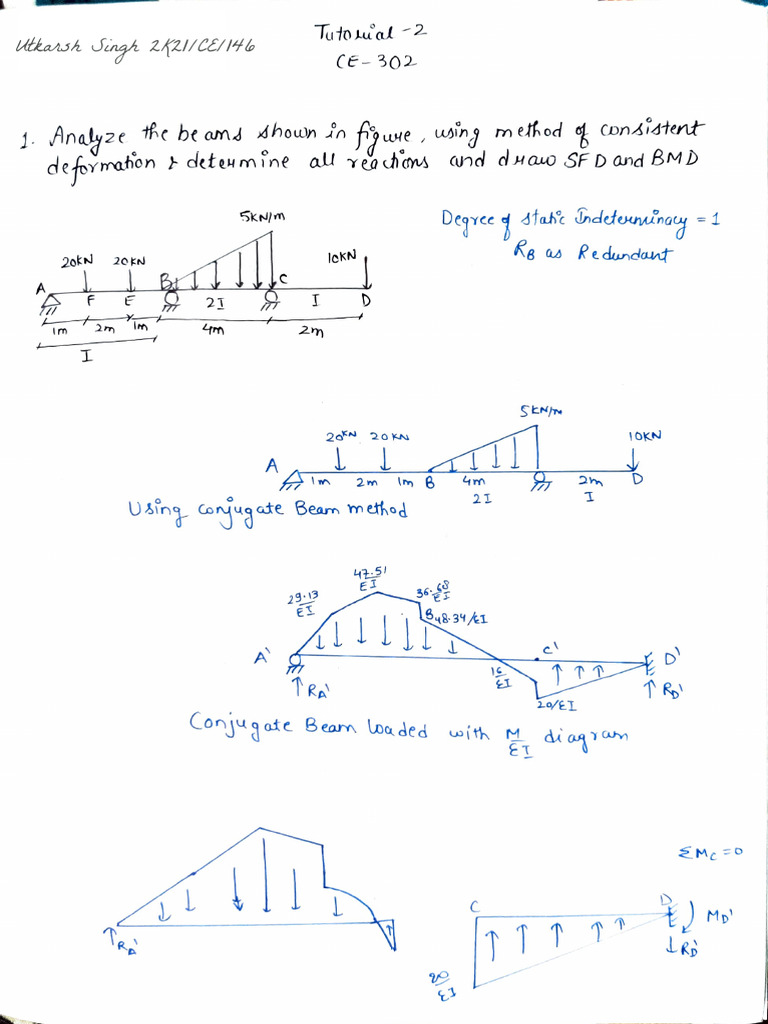 Tutorial -2
Utkarsh Singh 2K21/CE/146
CE-302
1. Analyze the beams shown in figure, using method of consistent
deformation & determine all reactions and draw SFD and BMD
5kN/m
Degree of static Indeterminacy = 1
RB as Redundant
20kN 20kN 10kN
A F E B 2I C I D
1m 2m 1m 4m 2m
I
5kN/m
20kN 20kN 10kN
A 1m 2m 1m B 4m 2m D
2I I
Using conjugate Beam method
47.51/EI
29.13/EI 36.68/EI
B 48.34/EI
A' C' D'
RA' RD'
20/EI
Conjugate Beam loaded with M/EI diagram
ΣMC = 0
C D MD'
RA' RD'
20/EI